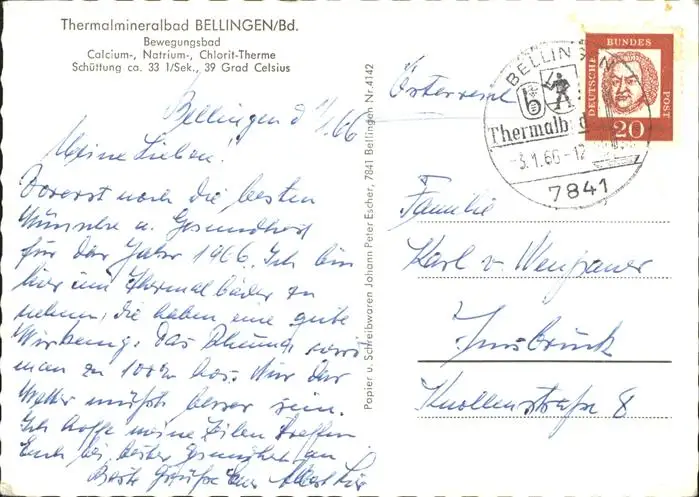 Thermalmineralbad BELLINGEN/Bd.
Bewegungsbad
Calcium-, Natrium-, Chlorit-Therme
Schüttung ca. 33 l/Sek., 39 Grad Celsius
Bellingen d 1/1. 66
Meine Lieben!
Vorerst noch die besten
Wünsche u. Gesundheit
für das Jahr 1966. Ich bin
hier um Thermalbäder zu
nehmen, die haben eine gute
Wirkung. Das Rheuma
man zu 100% los. Nur das
Wetter müßte besser sein.
Ich hoffe meine Zeilen treffen
Euch bei bester Gesundheit an
Beste Grüße Euer Albert
Papier u. Schreibwaren Johann Peter Escher, 7841 Bellingen Nr. 4142
Österreich
BELLINGEN
b
Thermalbad
-3.1.66-12
7841
DEUTSCHE BUNDES POST
20
Familie
Karl v.
Innsbruck
Knollerstraße 8